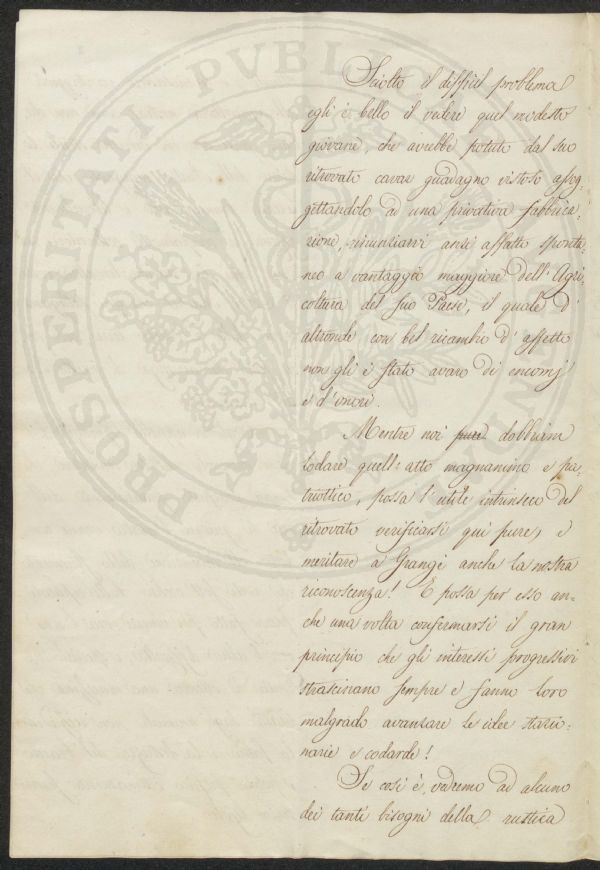 Sciolto il difficil problema
egli è bello il vedere quel modesto
giovane, che avrebbe potuto dal suo
ritrovato cavar guadagno vistoso assog-
gettandolo ad una privativa fabbrica-
zione, rinunziarvi anzi affatto sponta-
neo a vantaggio maggiore dell'Agri-
coltura del suo Paese, il quale d'
altronde con bel ricambio d'affetto
non gli è stato avaro di encomj
e d'onori.
Mentre noi pure dobbiam
lodare quell'atto magnanimo e pa-
triottico, possa l'utile intrinseco del
ritrovato verificarsi qui pure, e
meritare a Grangé anche la nostra
riconoscenza! E possa per esso an-
che una volta confermarsi il gran
principio che gli interessi progressivi
strascinano sempre e fanno loro
malgrado avanzare le idee stazio-
narie e codarde!
Se così è, vedremo ad alcuno
dei tanti bisogni della rustica
PROSPERITATI PVBLICAE